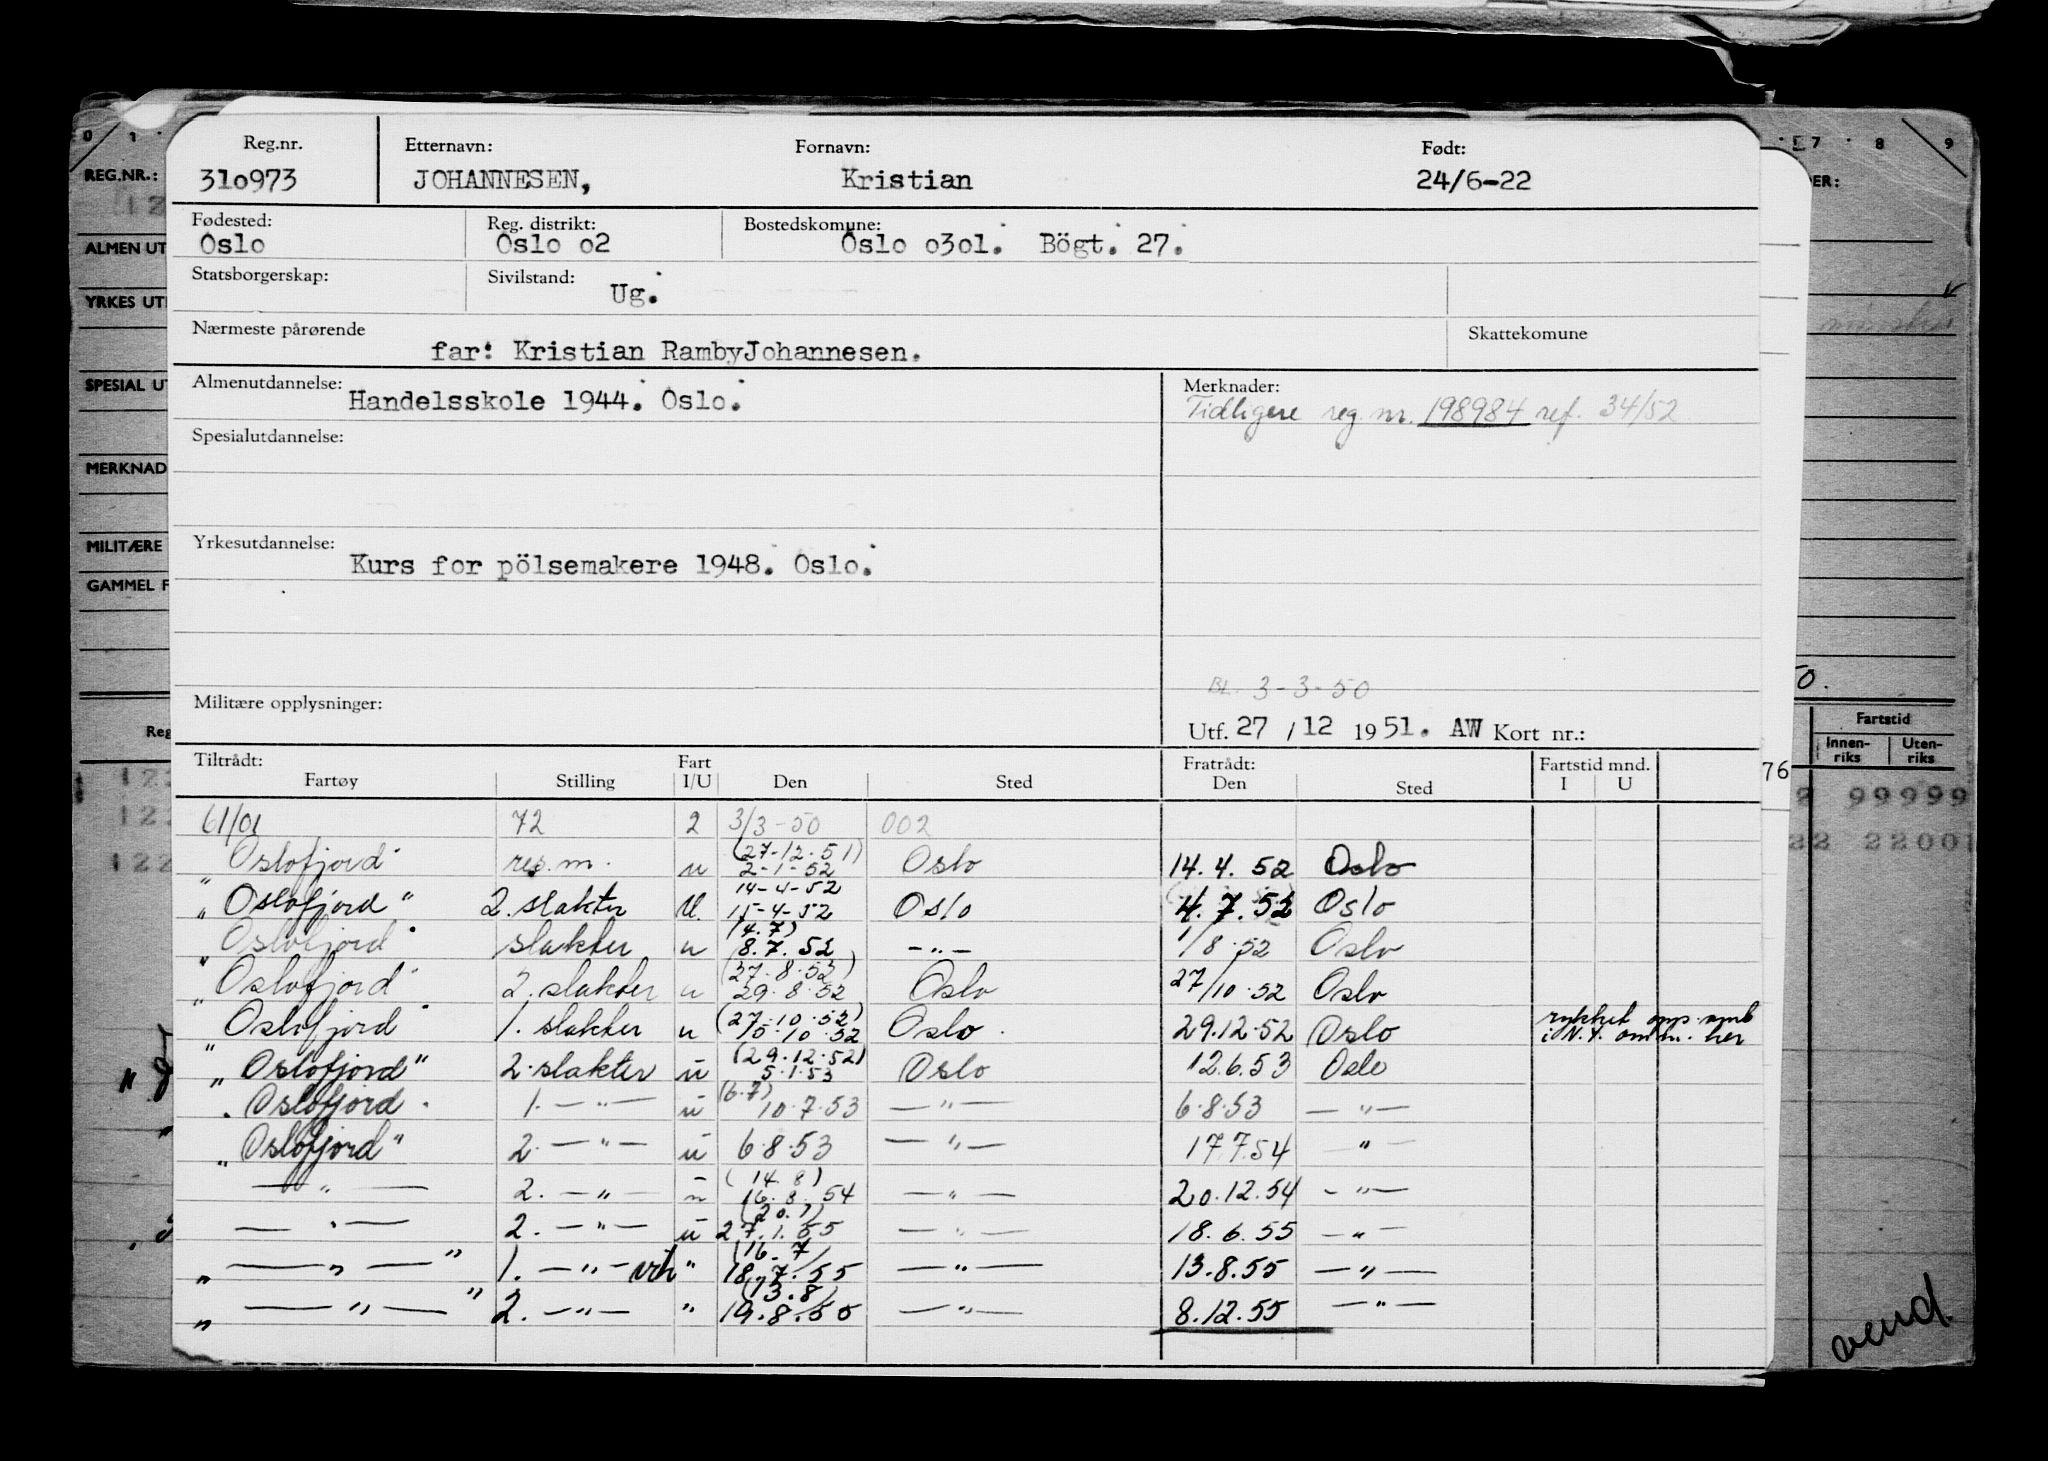 Reg.nr. Etternavn: Fornavn: Født:
31o973 JOHANNESEN, Kristian 24/6-22
Fødested: Reg. distrikt: Bostedskomune:
Oslo Oslo o2 Oslo o3o1. Bögt. 27.
Statsborgerskap: Sivilstand:
Ug.
Nærmeste pårørende Skattekomune
far: Kristian RambyJohannesen.
Almenutdannelse: Merknader:
Handelsskole 1944. Oslo. Tidligere reg. nr. 198984 ref. 34/52
Spesialutdannelse:
Yrkesutdannelse:
Kurs for pölsemakere 1948. Oslo.
BL. 3-3-50
Militære opplysninger:
Utf. 27 / 12 19 51. AW Kort nr.:
Tiltrådt: Fart Fratrådt: Fartstid mnd.
Fartøy Stilling I/U Den Sted Den Sted I U
61/01 72 2 3/3-50 002
"Oslofjord" res.m. u (27-12-51) 2-1-52 Oslo 14.4.52 Oslo
"Oslofjord" 2. slakter U. 14-4-52 15-4-52 Oslo 4.7.52 Oslo
"Oslofjord" slakter u (4.7) 8.7.52 -"- 1/8.52 Oslo
"Oslofjord" 2. slakter u (27.8.52) 29.8.52 Oslo 27/10.52 Oslo
"Oslofjord" 1. slakter u (27.10.52) Oslo 29.12.52 Oslo rykket opp i N.Y. her
"Oslofjord" 2. slakter u (29.12.52) 5.1.53 Oslo 12.6.53 Oslo
"Oslofjord" 1. -"- u (6.7) 10.7.53 -"- 6.8.53 -"-
"Oslofjord" 2. -"- u 6.8.53 -"- 17.7.54 -"-
-"- 2. -"- u (14.8) 16.8.54 -"- 20.12.54 -"-
-"- 2. -"- u (20.1) 27.1.55 -"- 18.6.55 -"-
"-"-" 1. -"- vik " (16.7) 18.7.55 -"- 13.8.55 -"-
"-"-" 2. -"- " (13.8) 19.8.55 -"- 8.12.55 -"-
0 1 7 8 9
REG.NR.:
ALMEN UT
YRKES UT
SPESIAL UT
MERKNAD
MILITÆRE
GAMMEL F
Reg
ER:
50.
Fartstid
Innen-
riks
Uten-
riks
76
99999
22 22001
122
vend